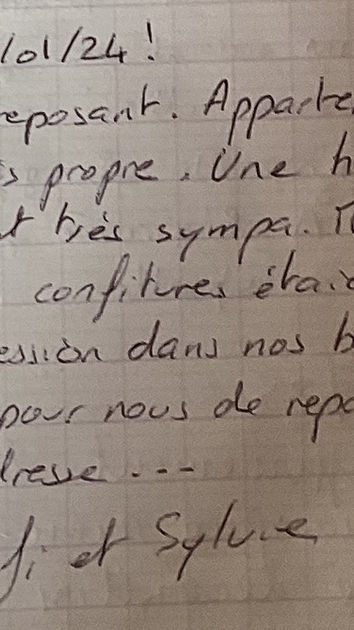 /01/24 !
eposant. Apparte
s propre. Une h
t très sympa. T
confitures étaie
ession dans nos b
pour nous de repa
dresse ...
fi et Sylvie